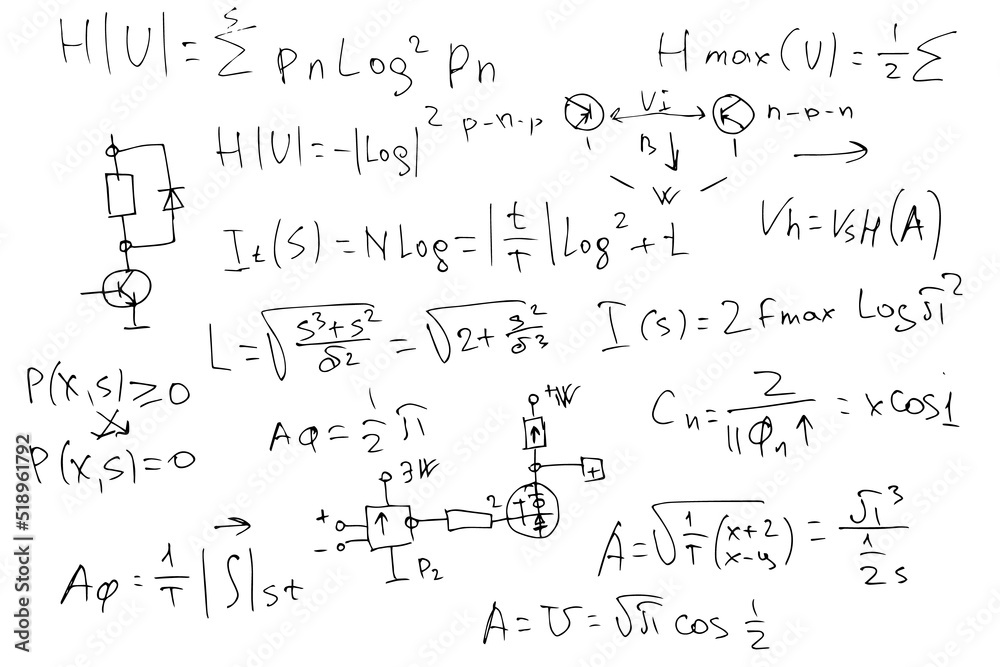 H|U| = s∑ pn Log² pn
H max(U) = 1/2 ∑
H|U| = -|Log|²
p-n-p Vi n-p-n
B ↓ →
W
It(S) = N Log = |t/T| Log² + L
Vh = VsH(A)
L = √(s³+s²/δ2) = √(2+s²/δ3)
I(s) = 2 Fmax Log π²
P(x,s) ≥ 0
P(x,s) = 0
Aφ = 1/2 π
+W
Cn = 2/||φn↑ = x cos i
3W
+
2
+
-
P2
→
Aφ = 1/T |∫| st
A = √(1/T (x+2 x-y)) = π³/(1/2 s)
A = U = √π cos 1/2
Adobe Stock | #518961792